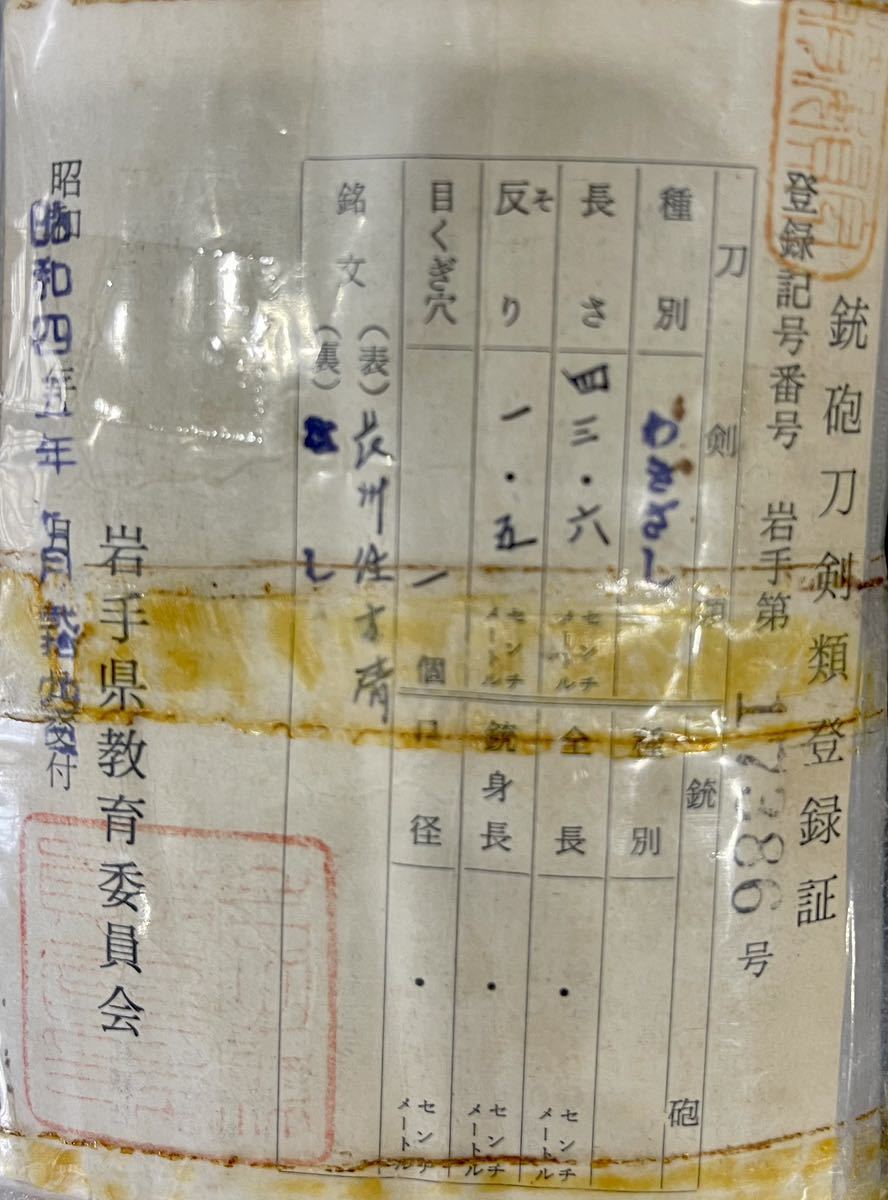 銃砲刀剣類登録証
登録記号番号 岩手第 17386 号
刀剣類
種別 わきざし
長さ 四三・六 センチメートル
反り そ 一・五 センチメートル
目くぎ穴 一 個
銘文 (表) 長州住方清
(裏) なし
銃砲
種別
全長 ・ センチメートル
銃身長 ・ センチメートル
口径 ・ センチメートル
岩手県教育委員会
昭和
昭和四五年 月 弐拾九 交付